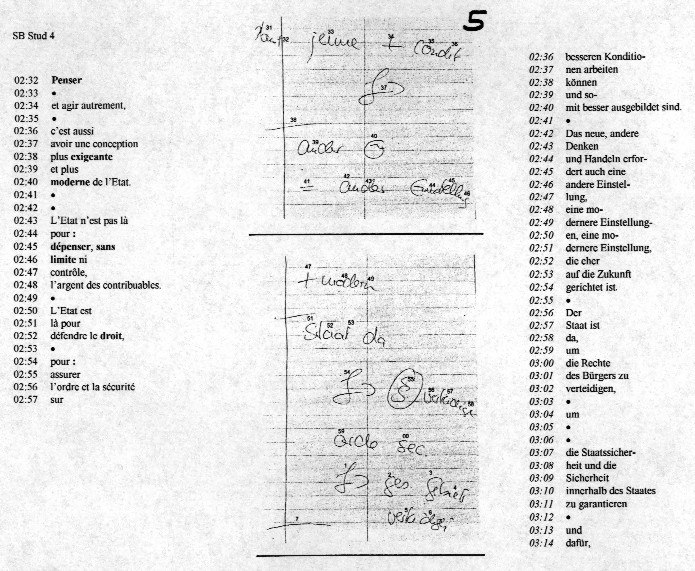 5
SB Stud 4
02:32 Penser
02:33 •
02:34 et agir autrement,
02:35 •
02:36 c'est aussi
02:37 avoir une conception
02:38 plus exigeante
02:39 et plus
02:40 moderne de l'Etat.
02:41 •
02:42 •
02:43 L'Etat n'est pas là
02:44 pour :
02:45 dépenser, sans
02:46 limite ni
02:47 contrôle,
02:48 l'argent des contribuables.
02:49 •
02:50 L'Etat est
02:51 là pour
02:52 défendre le droit,
02:53 •
02:54 pour :
02:55 assurer
02:56 l'ordre et la sécurité
02:57 sur
31 32 33 34 35 36
jeune + Condit
37
38
39 40
ander
41 42 43 44 45 46
= ander
47 48 49
+ modern
51 52 53
Staat da
54 55 56 57 58
§
59 00
sec.
1 2 3 4
ges
5 6
7
02:36 besseren Konditio-
02:37 nen arbeiten
02:38 können
02:39 und so-
02:40 mit besser ausgebildet sind.
02:41 •
02:42 Das neue, andere
02:43 Denken
02:44 und Handeln erfor-
02:45 dert auch eine
02:46 andere Einstel-
02:47 lung,
02:48 eine mo-
02:49 dernere Einstellung-
02:50 en, eine mo-
02:51 dernere Einstellung,
02:52 die eher
02:53 auf die Zukunft
02:54 gerichtet ist.
02:55 •
02:56 Der
02:57 Staat ist
02:58 da,
02:59 um
03:00 die Rechte
03:01 des Bürgers zu
03:02 verteidigen,
03:03 •
03:04 um
03:05 •
03:06 •
03:07 die Staatssicher-
03:08 heit und die
03:09 Sicherheit
03:10 innerhalb des Staates
03:11 zu garantieren
03:12 •
03:13 und
03:14 dafür,